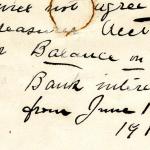 not agree
Treasurer Acct
Balance on
Bank inter
from June 1
191